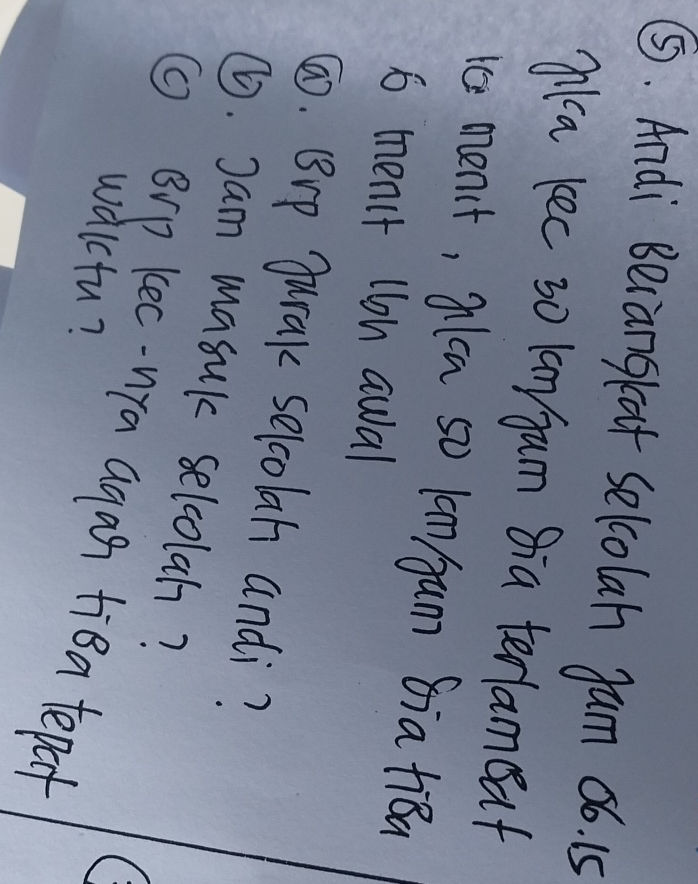 5. Andi Berangkat sekolah jam 06.15
jika kec 30 km/jam dia terlambat
10 menit, jika 50 km/jam dia tiba
6 menit lbh awal
a. Brp jarak sekolah andi?
b. Jam masuk sekolah?
c Brp kec-nya agar tiba tepat
waktu?